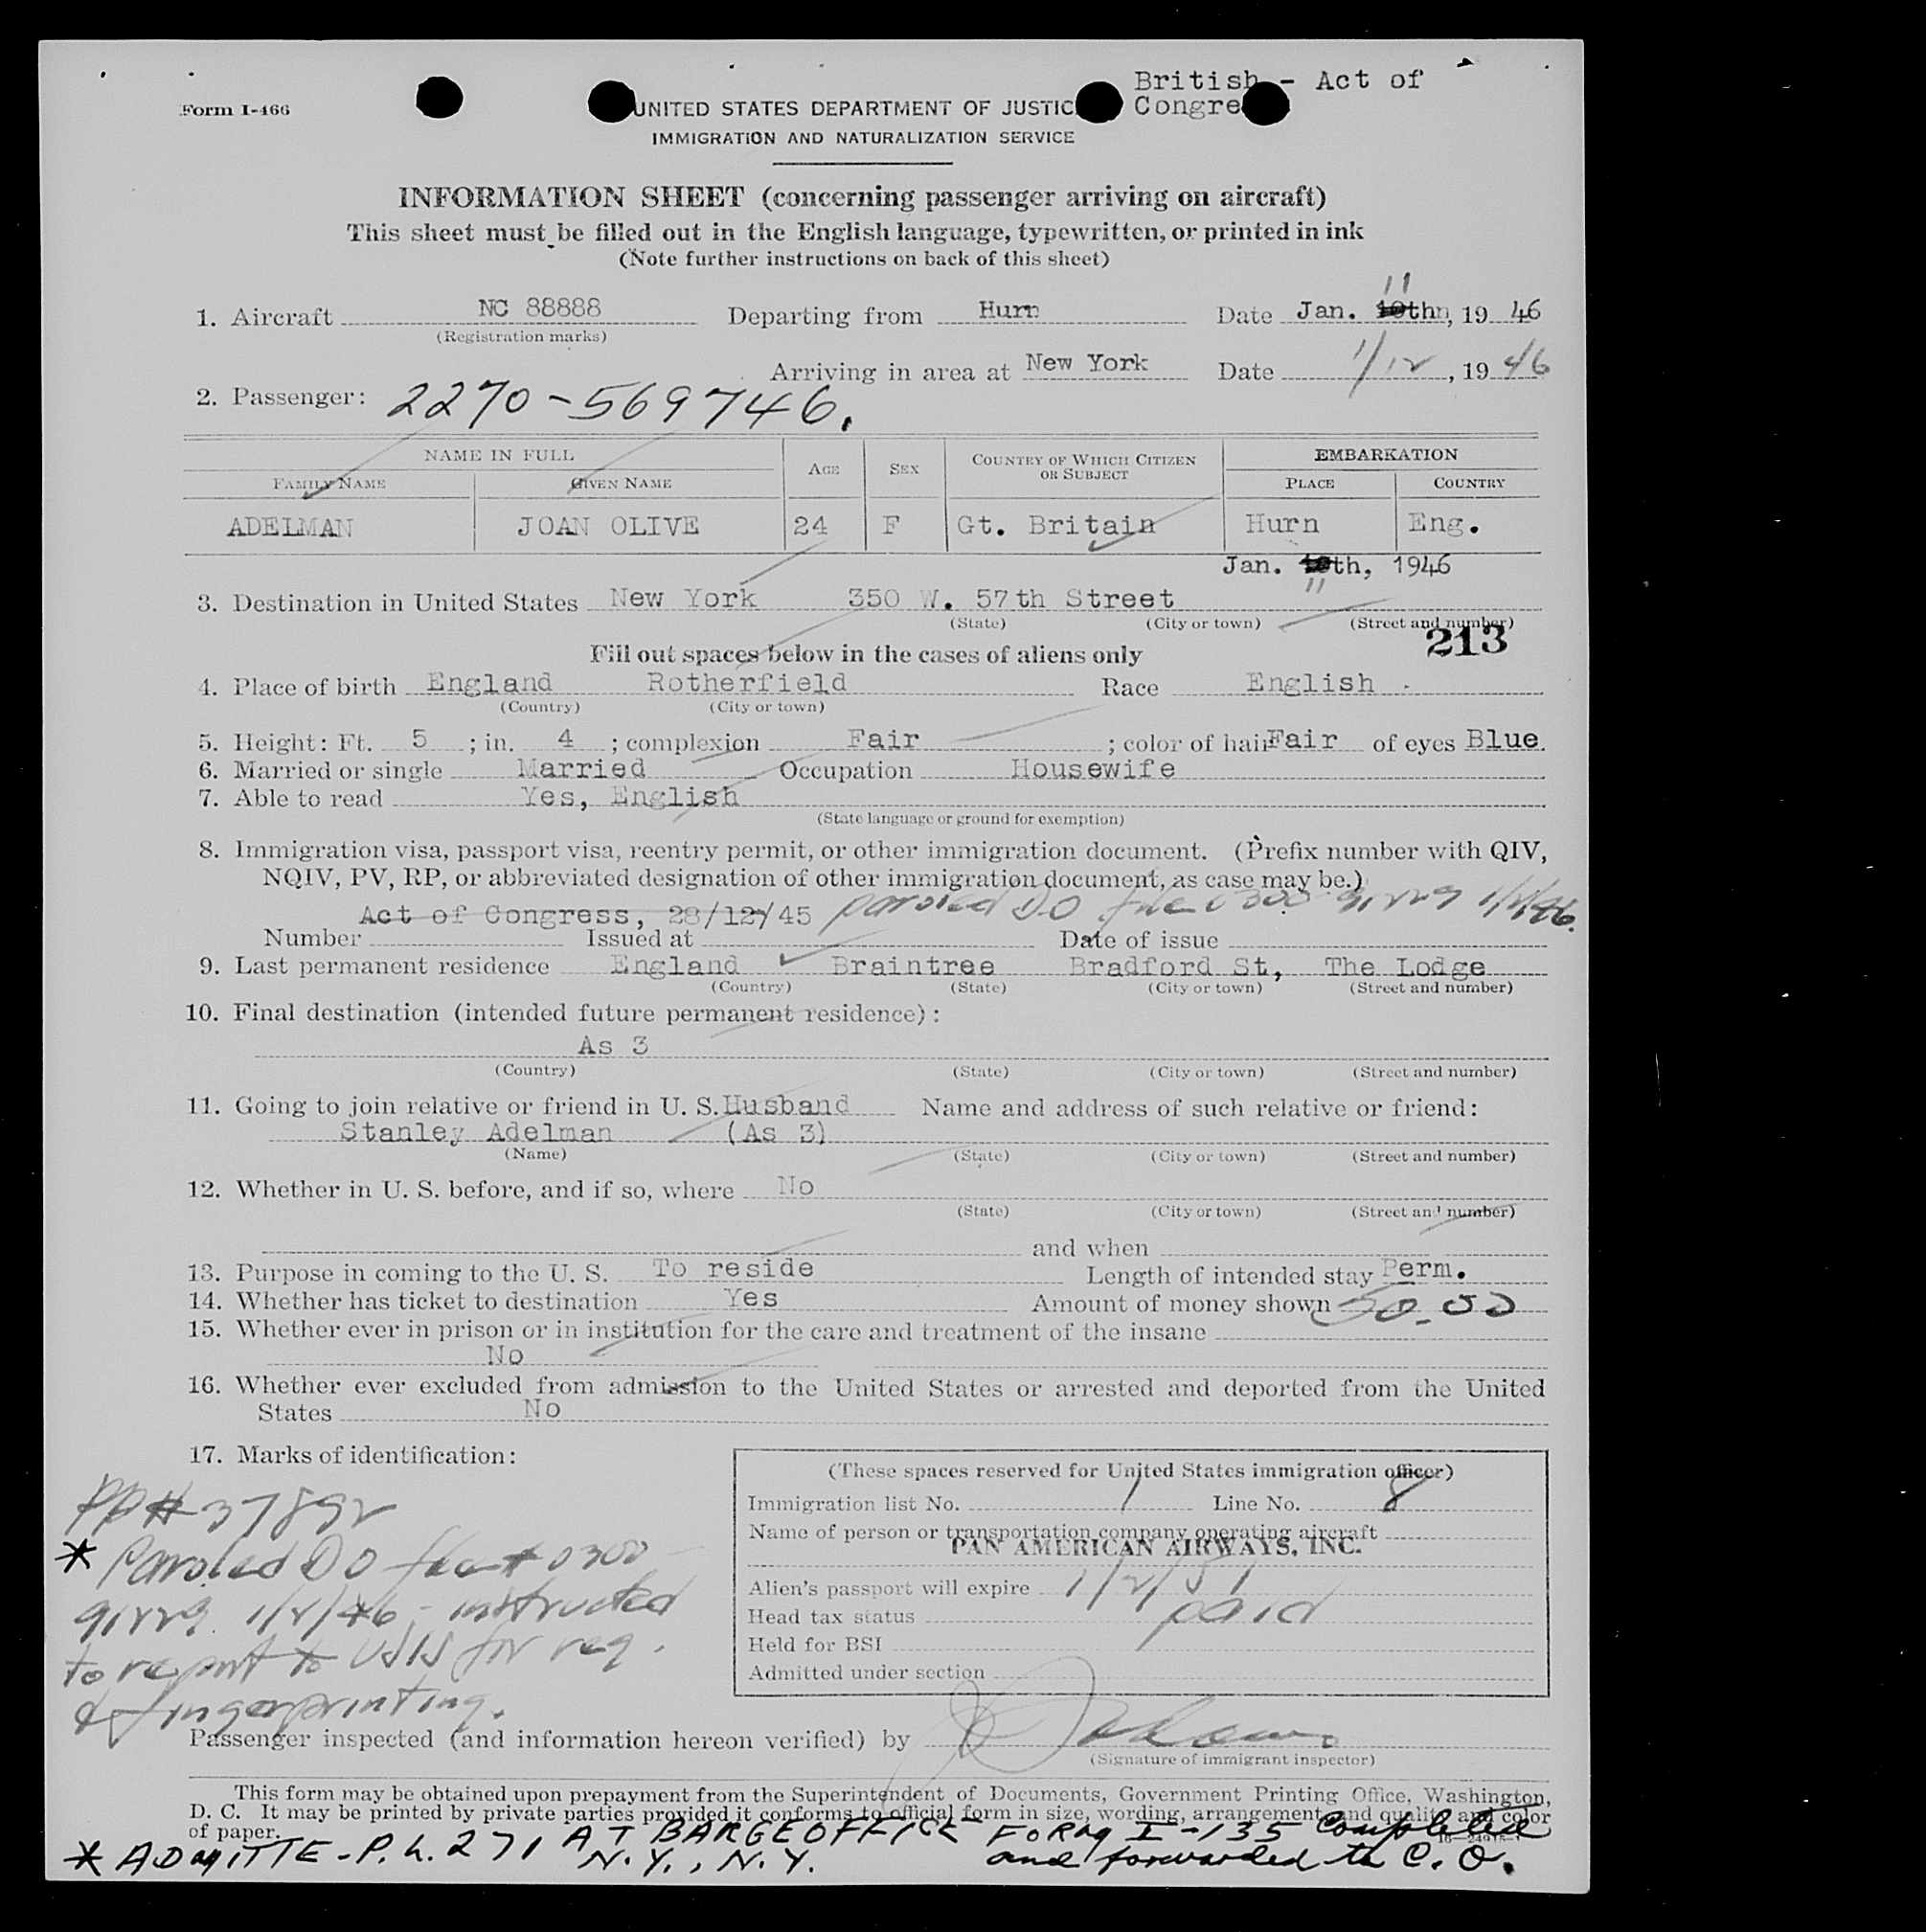 British - Act of
Form I-466
UNITED STATES DEPARTMENT OF JUSTIC Congre
IMMIGRATION AND NATURALIZATION SERVICE
INFORMATION SHEET (concerning passenger arriving on aircraft)
This sheet must be filled out in the English language, typewritten, or printed in ink
(Note further instructions on back of this sheet)
11
1. Aircraft NC 88888 Departing from Hurn Date Jan. 10th, 19 46
(Registration marks)
Arriving in area at New York Date 1/12, 19 46
2. Passenger: 2270-569746.
NAME IN FULL AGE SEX COUNTRY OF WHICH CITIZEN OR SUBJECT EMBARKATION
FAMILY NAME GIVEN NAME PLACE COUNTRY
ADELMAN JOAN OLIVE 24 F Gt. Britain Hurn Eng.
Jan. 10th, 1946
11
3. Destination in United States New York 350 W. 57th Street
(State) (City or town) (Street and number)
213
Fill out spaces below in the cases of aliens only
4. Place of birth England Rotherfield Race English
(Country) (City or town)
5. Height: Ft. 5 ; in. 4 ; complexion Fair ; color of hair Fair of eyes Blue
6. Married or single Married Occupation Housewife
7. Able to read Yes, English
(State language or ground for exemption)
8. Immigration visa, passport visa, reentry permit, or other immigration document. (Prefix number with QIV,
NQIV, PV, RP, or abbreviated designation of other immigration document, as case may be.)
Act of Congress, 28/12/45 paroled DO file 0300
Number Issued at Date of issue
9. Last permanent residence England Braintree Bradford St, The Lodge
(Country) (State) (City or town) (Street and number)
10. Final destination (intended future permanent residence):
As 3
(Country) (State) (City or town) (Street and number)
11. Going to join relative or friend in U. S. Husband Name and address of such relative or friend:
Stanley Adelman (As 3)
(Name) (State) (City or town) (Street and number)
12. Whether in U. S. before, and if so, where No
(State) (City or town) (Street and number)
and when
13. Purpose in coming to the U. S. To reside Length of intended stay Perm.
14. Whether has ticket to destination Yes Amount of money shown 50.00
15. Whether ever in prison or in institution for the care and treatment of the insane
No
16. Whether ever excluded from admission to the United States or arrested and deported from the United
States No
17. Marks of identification:
(These spaces reserved for United States immigration officer)
Immigration list No. 1 Line No. 8
Name of person or transportation company operating aircraft
PAN AMERICAN AIRWAYS, INC.
Alien's passport will expire 1/2/51
Head tax status paid
Held for BSI
Admitted under section
PP# 37892
* Paroled DO file # 0300
instructed
to report to USIS for reg.
& fingerprinting.
Passenger inspected (and information hereon verified) by
(Signature of immigrant inspector)
This form may be obtained upon prepayment from the Superintendent of Documents, Government Printing Office, Washington,
D. C. It may be printed by private parties provided it conforms to official form in size, wording, arrangement, and quality and color
of paper.
* ADMITTE - P.L. 271 AT BARGE OFFICE N.Y., N.Y. FORM I-135 Completed
and forwarded to C.O.